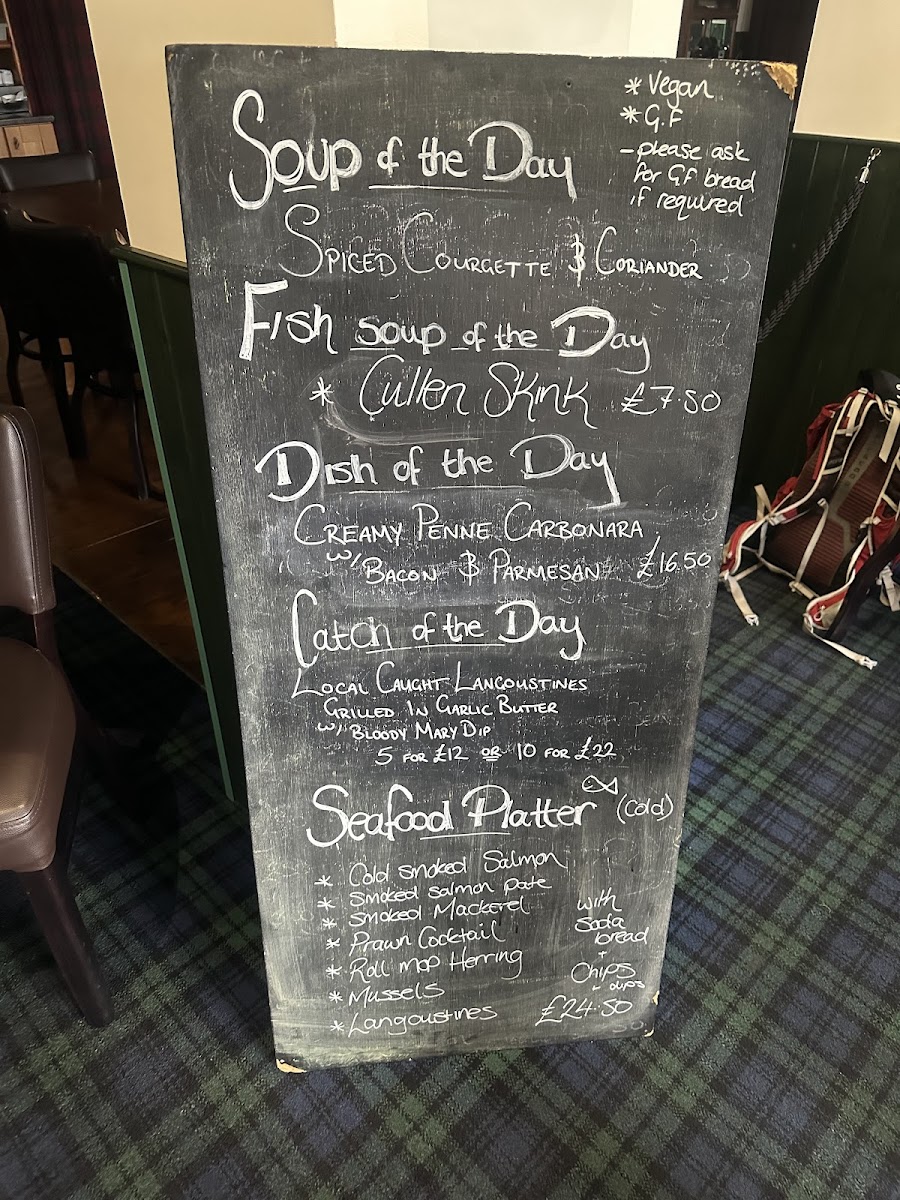 * Vegan
* G.F
- please ask
for GF bread
if required
Soup of the Day
SPICED COURGETTE & CORIANDER
Fish soup of the Day
* Cullen Skink £7.50
Dish of the Day
CREAMY PENNE CARBONARA
W/ BACON & PARMESAN £16.50
Catch of the Day
LOCAL CAUGHT LANGOUSTINES
GRILLED IN GARLIC BUTTER
W/ BLOODY MARY DIP
5 FOR £12 OR 10 FOR £22
Seafood Platter (Cold)
* Cold smoked Salmon
* smoked salmon pate
* smoked Mackerel
* Prawn Cocktail
* Roll mop Herring
* Mussels
* Langoustines
with
soda
bread
+
Chips
dips
£24.50